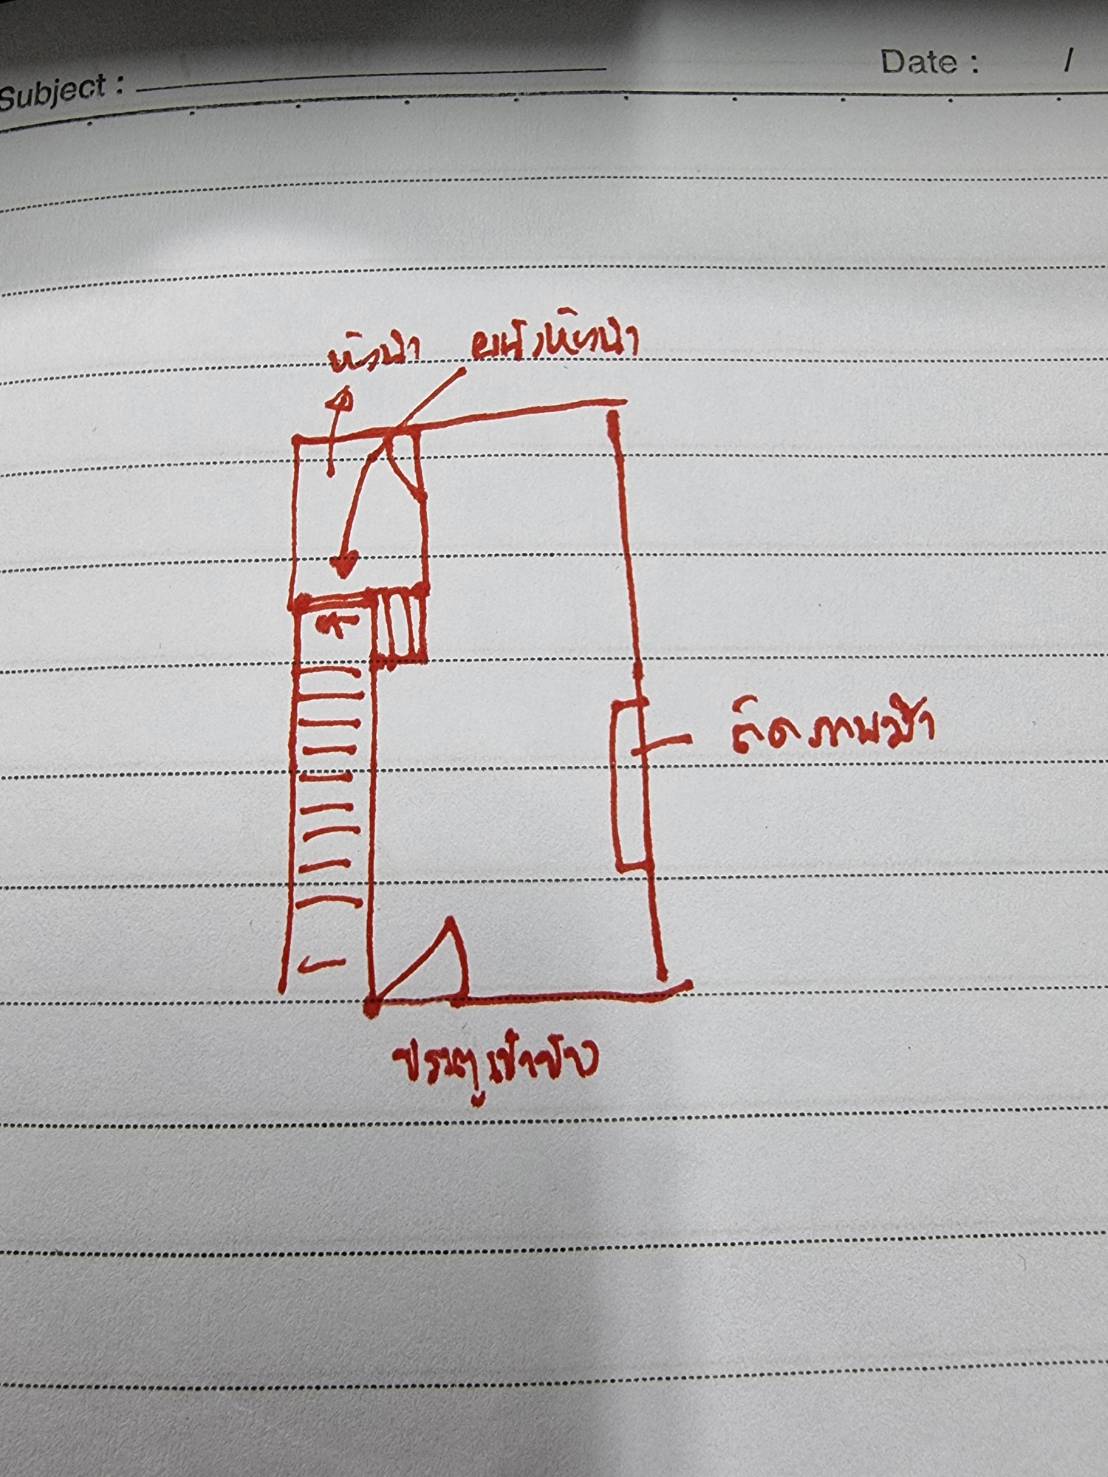 Subject :
Date : /
ห้องน้ำ
ผนังห้องน้ำ
ติดภาพม้า
ประตูเข้าบ้าน